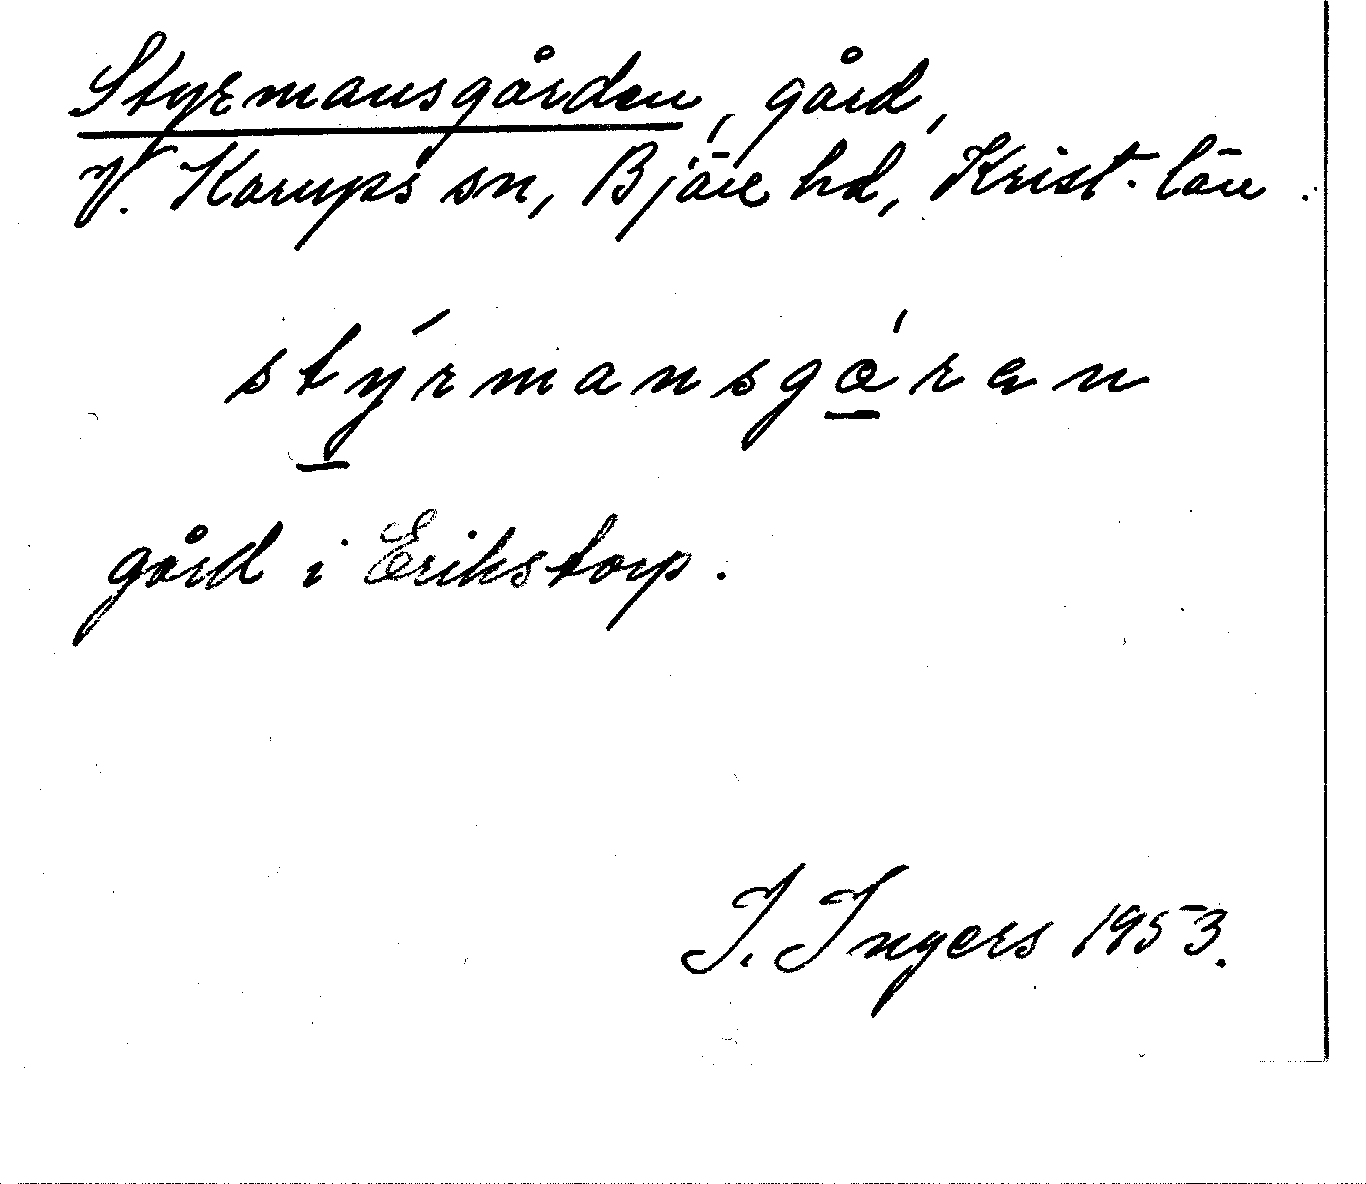 Styrmansgården, gård,
V. Karups sn, Bjäre hd, Krist. län.
stýrmansgǻran
gård i Erikstorp.
I. Ingers 1953.